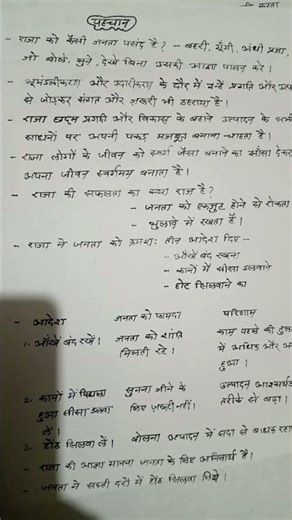 पहचान
- राजा को कैसी जनता पसंद है? - बहरी, गूँगी, अंधी प्रजा,
जो बोले, सुने, देखे बिना उसकी आज्ञा पालन करे।
- भूमंडलीकरण और उदारीकरण के दौर में इन्हें प्रगति और
से जोड़कर संगत और ज़रूरी भी ठहराया है।
- राजा छद्म प्रगति और विकास के बहाने उत्पादन के सभी
साधनों पर अपनी पकड़ मजबूत बनाना चाहता है।
- राजा लोगों के जीवन को स्वर्ग जैसा बनाने का झाँसा देकर
अपना जीवन स्वर्गमय बनाता है।
- राजा की सफलता का क्या राज है?
- जनता को एकजुट होने से रोकता
- भुलावे में रखता है।
- राजा ने जनता को क्रमशः तीन आदेश दिए -
- आँखें बंद रखना
- कानों में सीसा डलवाने
- होंठ सिलवाने का
- आदेश जनता को फायदा परिणाम
1. आँखें बंद रखें। जनता को शांति काम पहले की
मिलती रहे। में अधिक और
हुआ।
2. कानों में पिघला सुनना जीने के उत्पादन आश्चर्य
हुआ सीसा डलवा लिए ज़रूरी नहीं। तरीके से बढ़ा।
लें।
3. होंठ सिलवा लें। बोलना उत्पादन में सदा से बाधक रहा
- राजा की आज्ञा मानना जनता के लिए अनिवार्य है।
- जनता ने सस्ती दरों में होंठ सिलवा लिये।